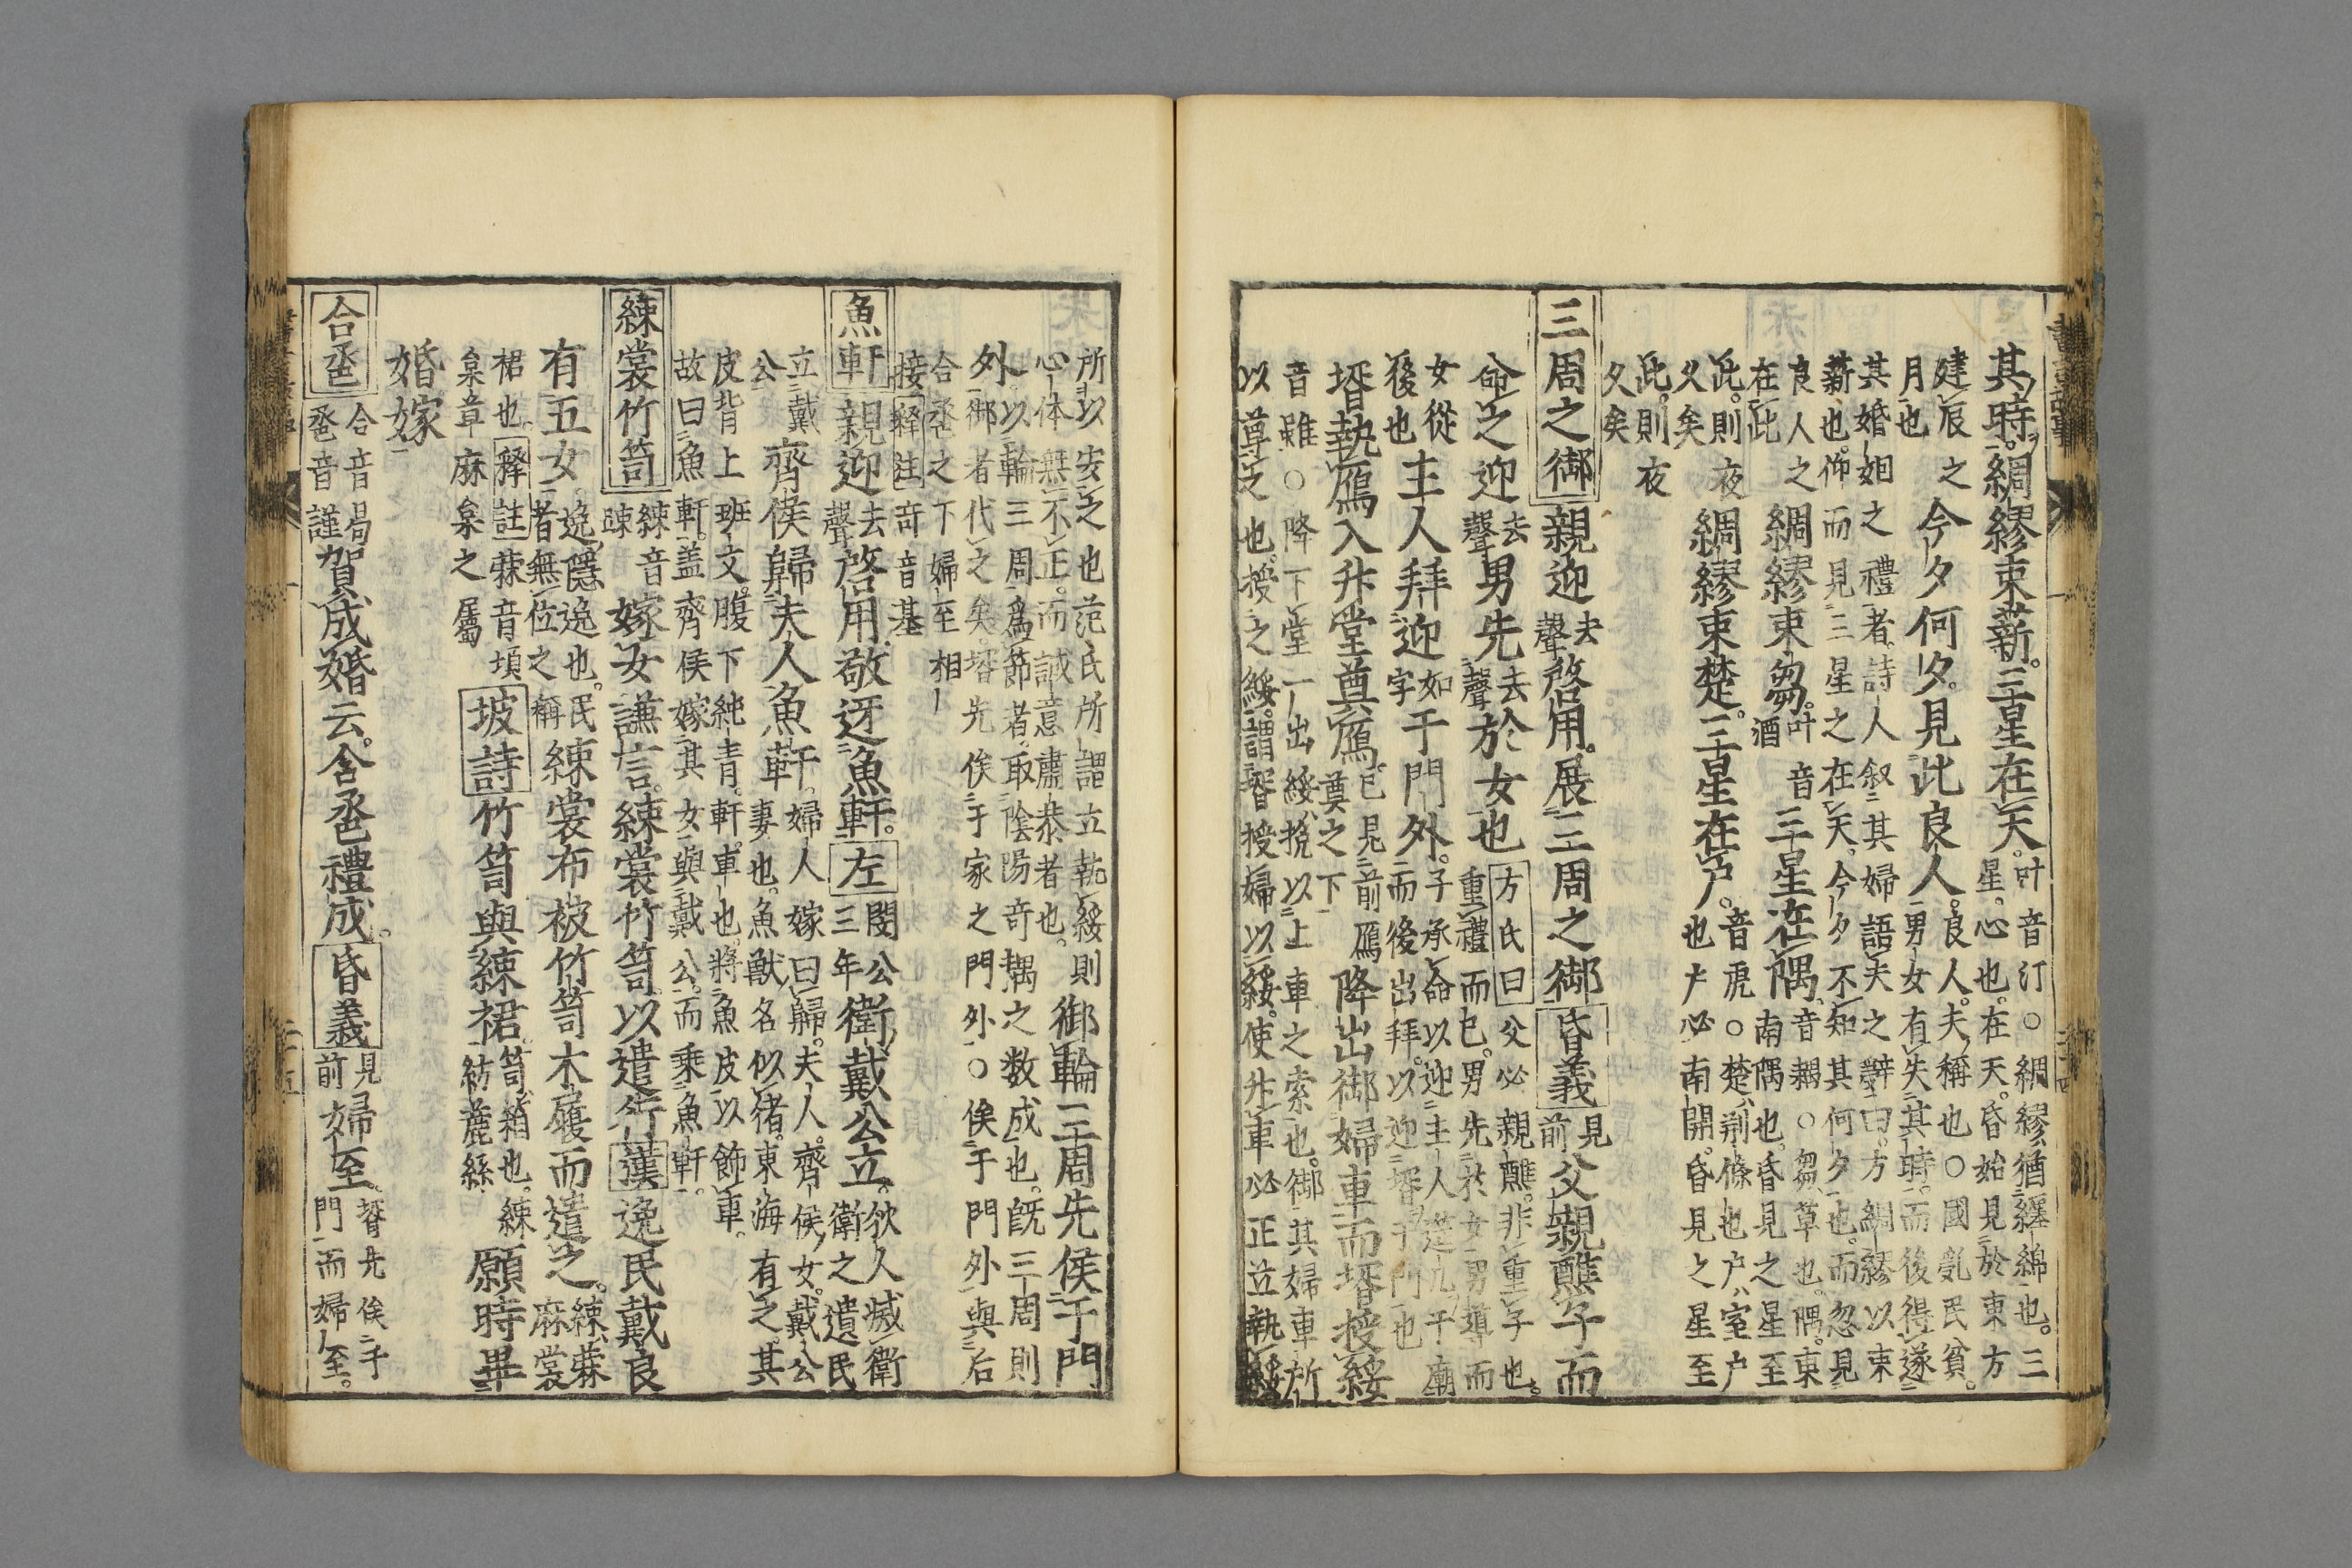 其時綢繆束薪三星在天
叶音汀○綢繆猶纏綿也三
星心也在天昏始見於東方
建辰之
月也
今夕何夕見此良人
良人夫稱也○國亂民貧
男女有失其時而後得遂
其婚姻之禮者詩人叙其婦語夫之辞曰方綢繆以束
薪也仰而見三星之在天今夕不知其何夕也而忽見
良人之
在此
綢繆束芻
叶音
酒
三星在隅
音耦○芻草也隅東
南隅也昏見之星至
此則夜
久矣
綢繆束楚三星在戶
音虎○楚荆條也户室户
也户必南開昏見之星至
此則夜
久矣
三周之御
親迎
去
聲
啓用展三周之御
昏義
見
前
父親醮子而
命之迎
去
聲
男先
去
聲
於女也
方氏曰父必親醮非重子也
重禮而已男先於女男導而
女從
後也
主人拜迎
如
字
于門外
子承命以迎主人筵几于廟
而後出拜以迎壻于門也
壻執鴈入升堂奠鴈
已見前鴈
奠之下
降出御婦車而壻授綏
音雖○降下堂出綏挽以上車之索也御其婦車所
以尊之也授之綏謂壻授婦以綏使升車必正立執綏
所以安之也范氏所謂立執綏則
心体無不正而誠意肅恭者也
御輪三周先俟于門
外
以輪三周爲節者取陰陽奇耦之数成也既三周則
御者代之矣壻先俟于家之門外○俟于門外與后
合巹之下婦至相
接釋註奇音基
魚軒
親迎
去
聲
啓用敬迓魚軒
左
閔公
三年
衛戴公立
狄人滅衛
衛之遺民
立戴
公
齊侯歸夫人魚軒
婦人嫁曰歸夫人齊侯女戴公
妻也魚獸名似猪東海有之其
皮背上班文腹下純青軒車也將魚皮以飾車
故曰魚軒盖齊侯嫁其女與戴公而乘魚軒
練裳竹笥
練音
疎
嫁女謙言練裳竹笥以遣行
漢
逸民戴良
有五女
逸隱逸也民
者無位之稱
練裳布被竹笥木屨而遣之
練䔉
麻裳
裙也釋註䔉音填
枲章麻枲之屬
坡詩
竹笥與練裙
笥箱也練
紡麄絲
願時畢
婚嫁
合巹
合音曷
巹音謹
賀成婚云合巹禮成
昏義
見
前
婦至
壻先俟于
門而婦至